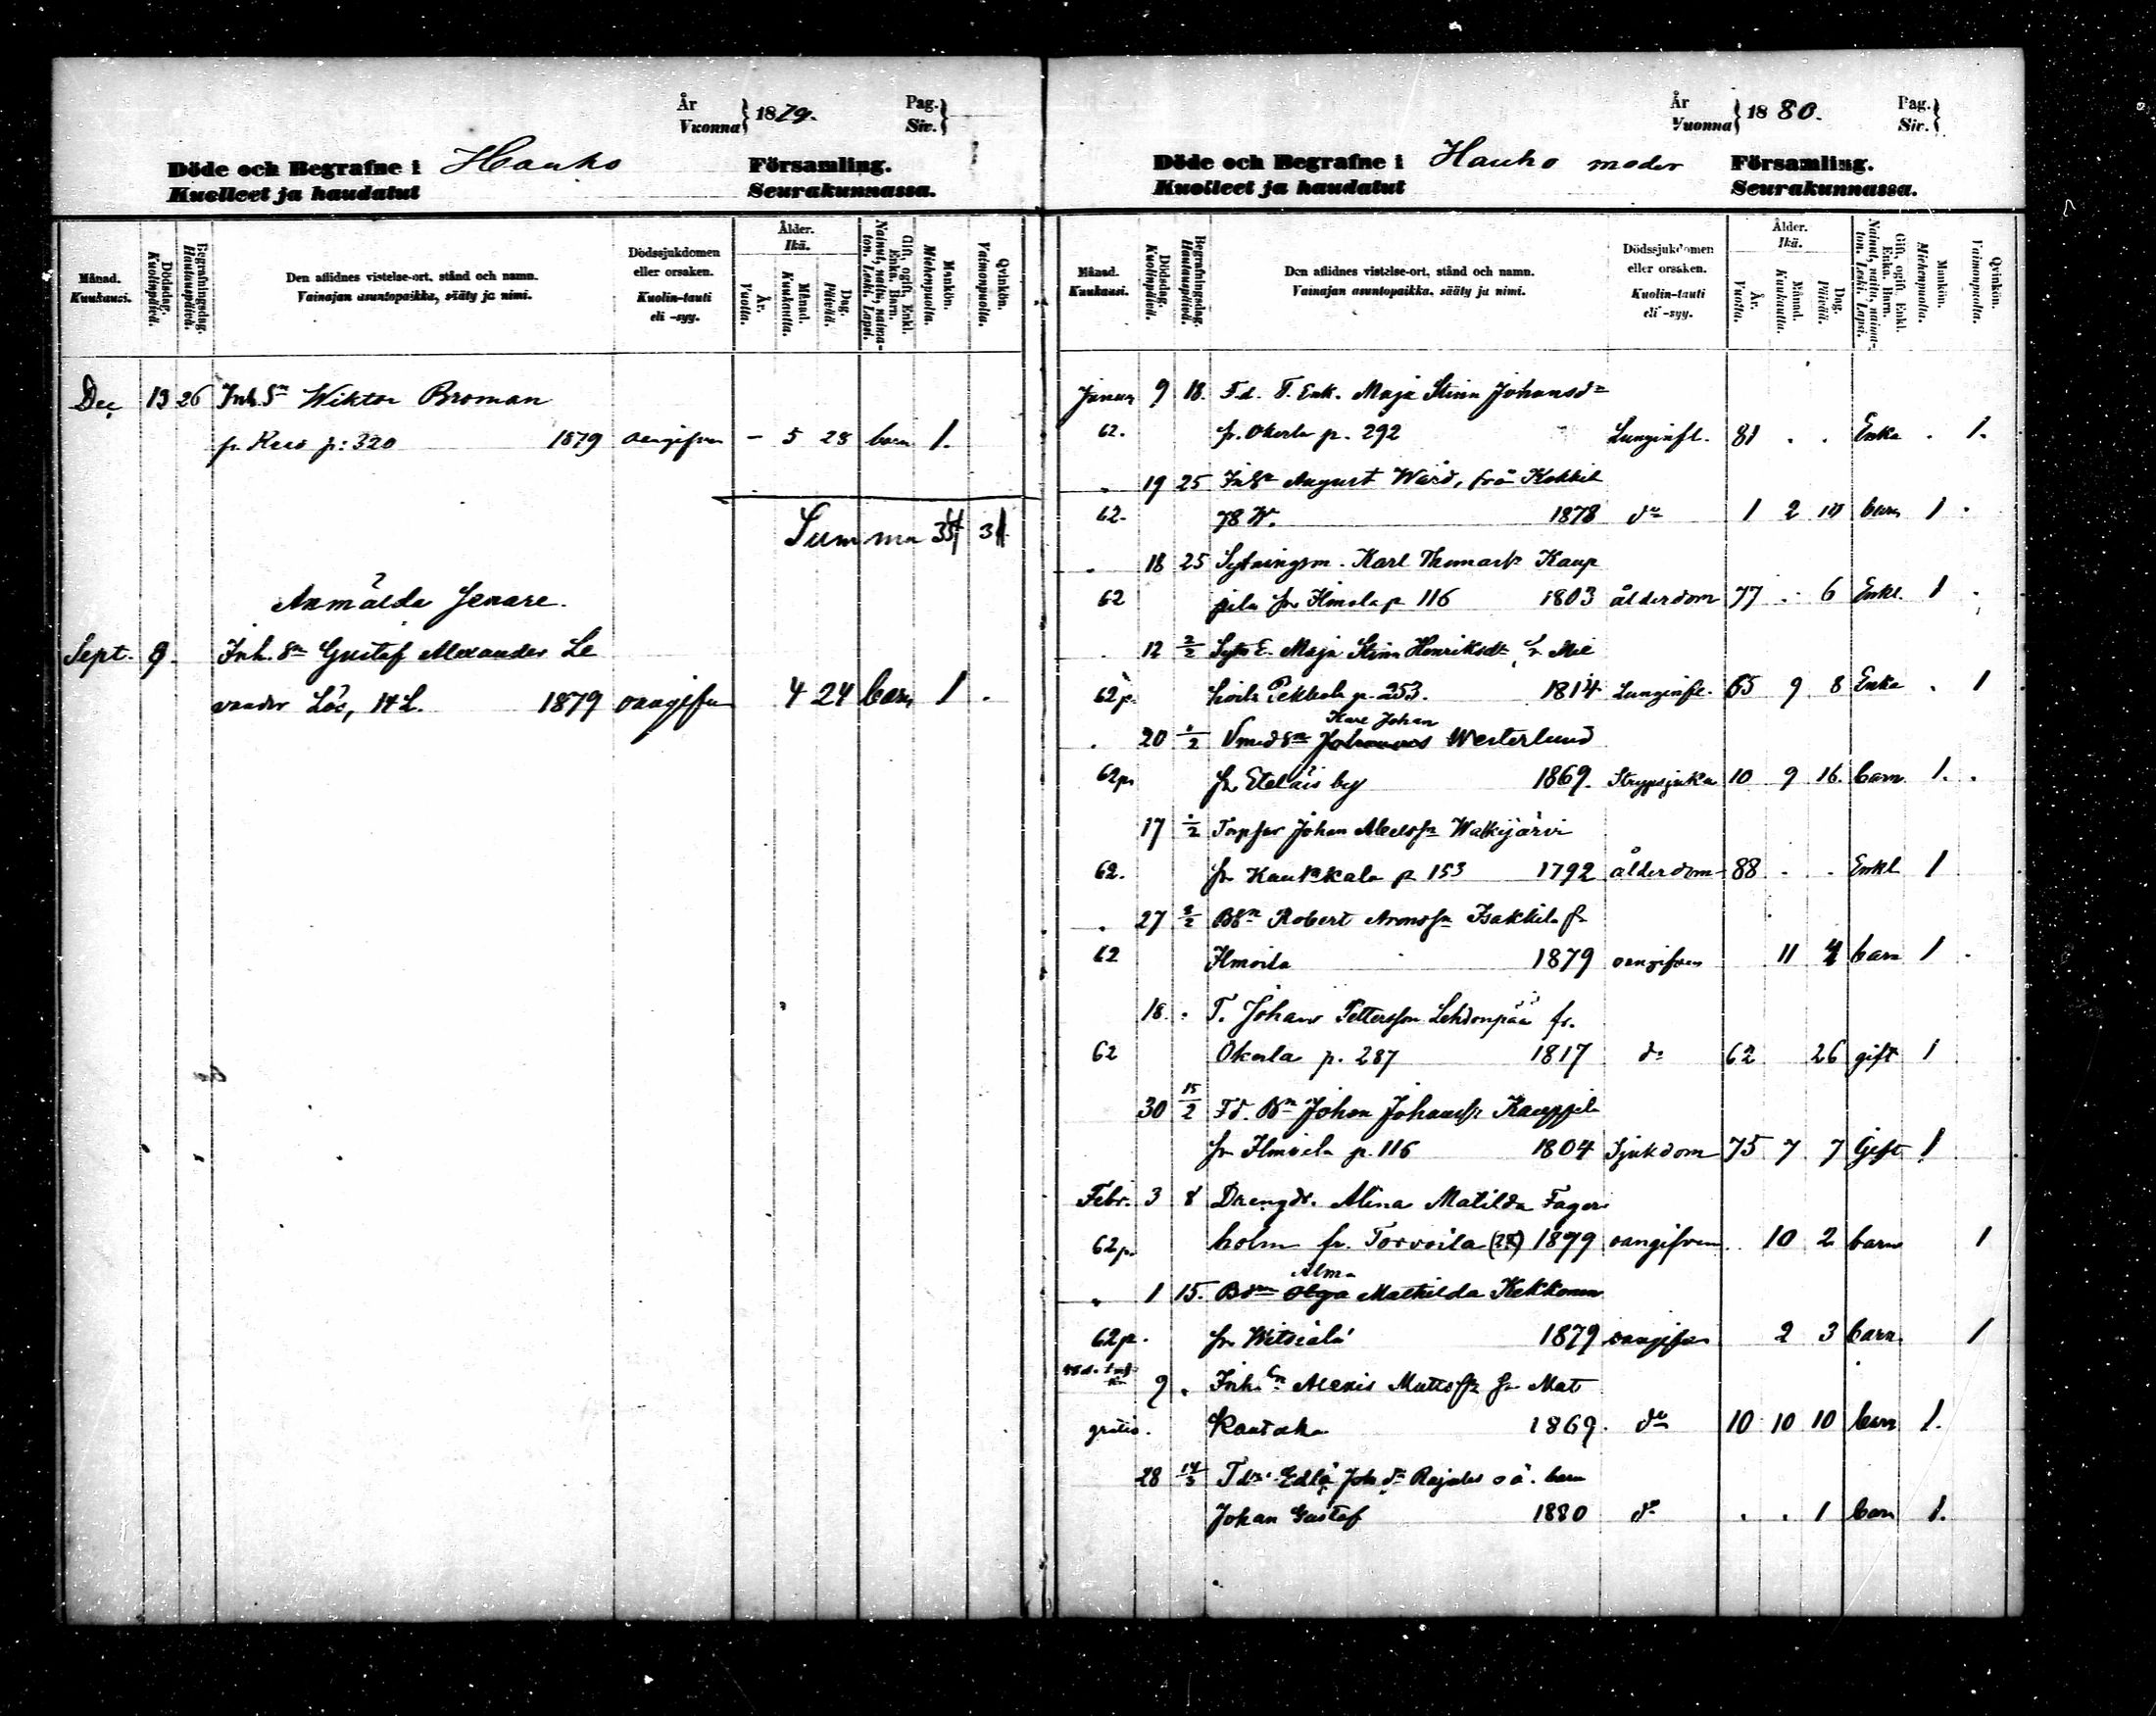 År
Vuonna } 1879.
Pag.
Siv. }
Döde och Begrafne i Hauho Församling.
Kuolleet ja haudatut Seurakunnassa.
Månad. Kuukausi.
Dödsdag. Kuolinpäivä.
Begrafningsdag. Hautauspäivä.
Den aflidnes vistelse-ort, stånd och namn.
Vainajan asuntopaikka, sääty ja nimi.
Dödssjukdomen eller orsaken.
Kuolin-tauti eli -syy.
Ålder. Ikä.
År. Vuotta.
Månad. Kuukautta.
Dag. Päivää.
Gift, ogift, Enkl. Enka. Barn.
Nainut, naitu, naimaton. Leski. Lapsi.
Mankön. Miehenpuolta.
Qvinkön. Vaimonpuolta.
Dec 13 26 Inh. Sn Wiktor Broman
p: 320 1879 oangifven - 5 28 barn 1.
Summa
Anmälda senare.
Sept. 9. Inh. Sn Gustaf Alexander Le
vander 14 L. 1879 oangifven 4 24 barn 1 .
År
Vuonna } 1880.
Pag.
Siv. }
Döde och Begrafne i Hauho moder Församling.
Kuolleet ja haudatut Seurakunnassa.
Månad. Kuukausi.
Dödsdag. Kuolinpäivä.
Begrafningsdag. Hautauspäivä.
Den aflidnes vistelse-ort, stånd och namn.
Vainajan asuntopaikka, sääty ja nimi.
Dödssjukdomen eller orsaken.
Kuolin-tauti eli -syy.
Ålder. Ikä.
År. Vuotta.
Månad. Kuukautta.
Dag. Päivää.
Gift, ogift, Enkl. Enka. Barn.
Nainut, naitu, naimaton. Leski. Lapsi.
Mankön. Miehenpuolta.
Qvinkön. Vaimonpuolta.
Januar 9 18. F.d. T. Enk. Maja Stina Johansdr
62. fr. Okerla p. 292 Lunginfl. 81 . . Enka . 1.
19 25 August Wärd, från
62. 78 W. 1878 do 1 2 10 barn 1 .
18 25 Sytningsm. Karl Thomasfr Kaup
62 pila fr Ilmola p 116 1803 ålderdom 77 . 6 Enkl. 1 .
12 2/2 Sytn E. Maja Stina Henriksdr fr
62 p. Pekkola p. 253. 1814 Lunginfl. 65 9 8 Enka . 1
20 1/2 Karl Johan Westerlund
62 p. fr Eteläis by 1869. Strypsjuka 10 9 16. barn 1. .
17 1/2 Johan Walkijärvi
62. fr Kaukkala p 153 1792 ålderdom 88 . . Enkl 1
27 8/2 Bsn Robert Aronsfn Isakkila fr
62 Ilmoila 1879 oangifven 11 4 barn 1 .
18. . T. Johan Pettersson Lehdonpää fr.
62 Okerla p. 287 1817 do 62 26 gift 1
30 15/2 Fd. Bn Johan Johansfr Kauppila
fr Ilmoila p. 116 1804 Sjukdom 75 7 7 Gift 1
Febr. 3 8 Drengdr. Alina Matilda Fager
62 p. holm fr. Torvoila 1879 oangifven. 10 2 barn 1
1 15. Bdr Alma Mathilda Kekkonen
62 p. fr Witsiälä 1879 oangifven 2 3 barn 1
9 . Inh. Sn Alexis Mattsfn fr Mat
gratis. 1869. do 10 10 10 barn 1.
28 14/3 Tdr. Edla Joh.dr oä. barn
Johan Gustaf 1880 do . . 1 barn 1.